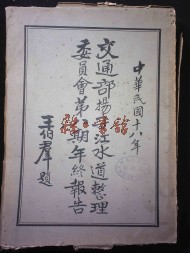 中華民國十八年
交通部揚子江水道整理
委員會第期年終報告
王伯羣題